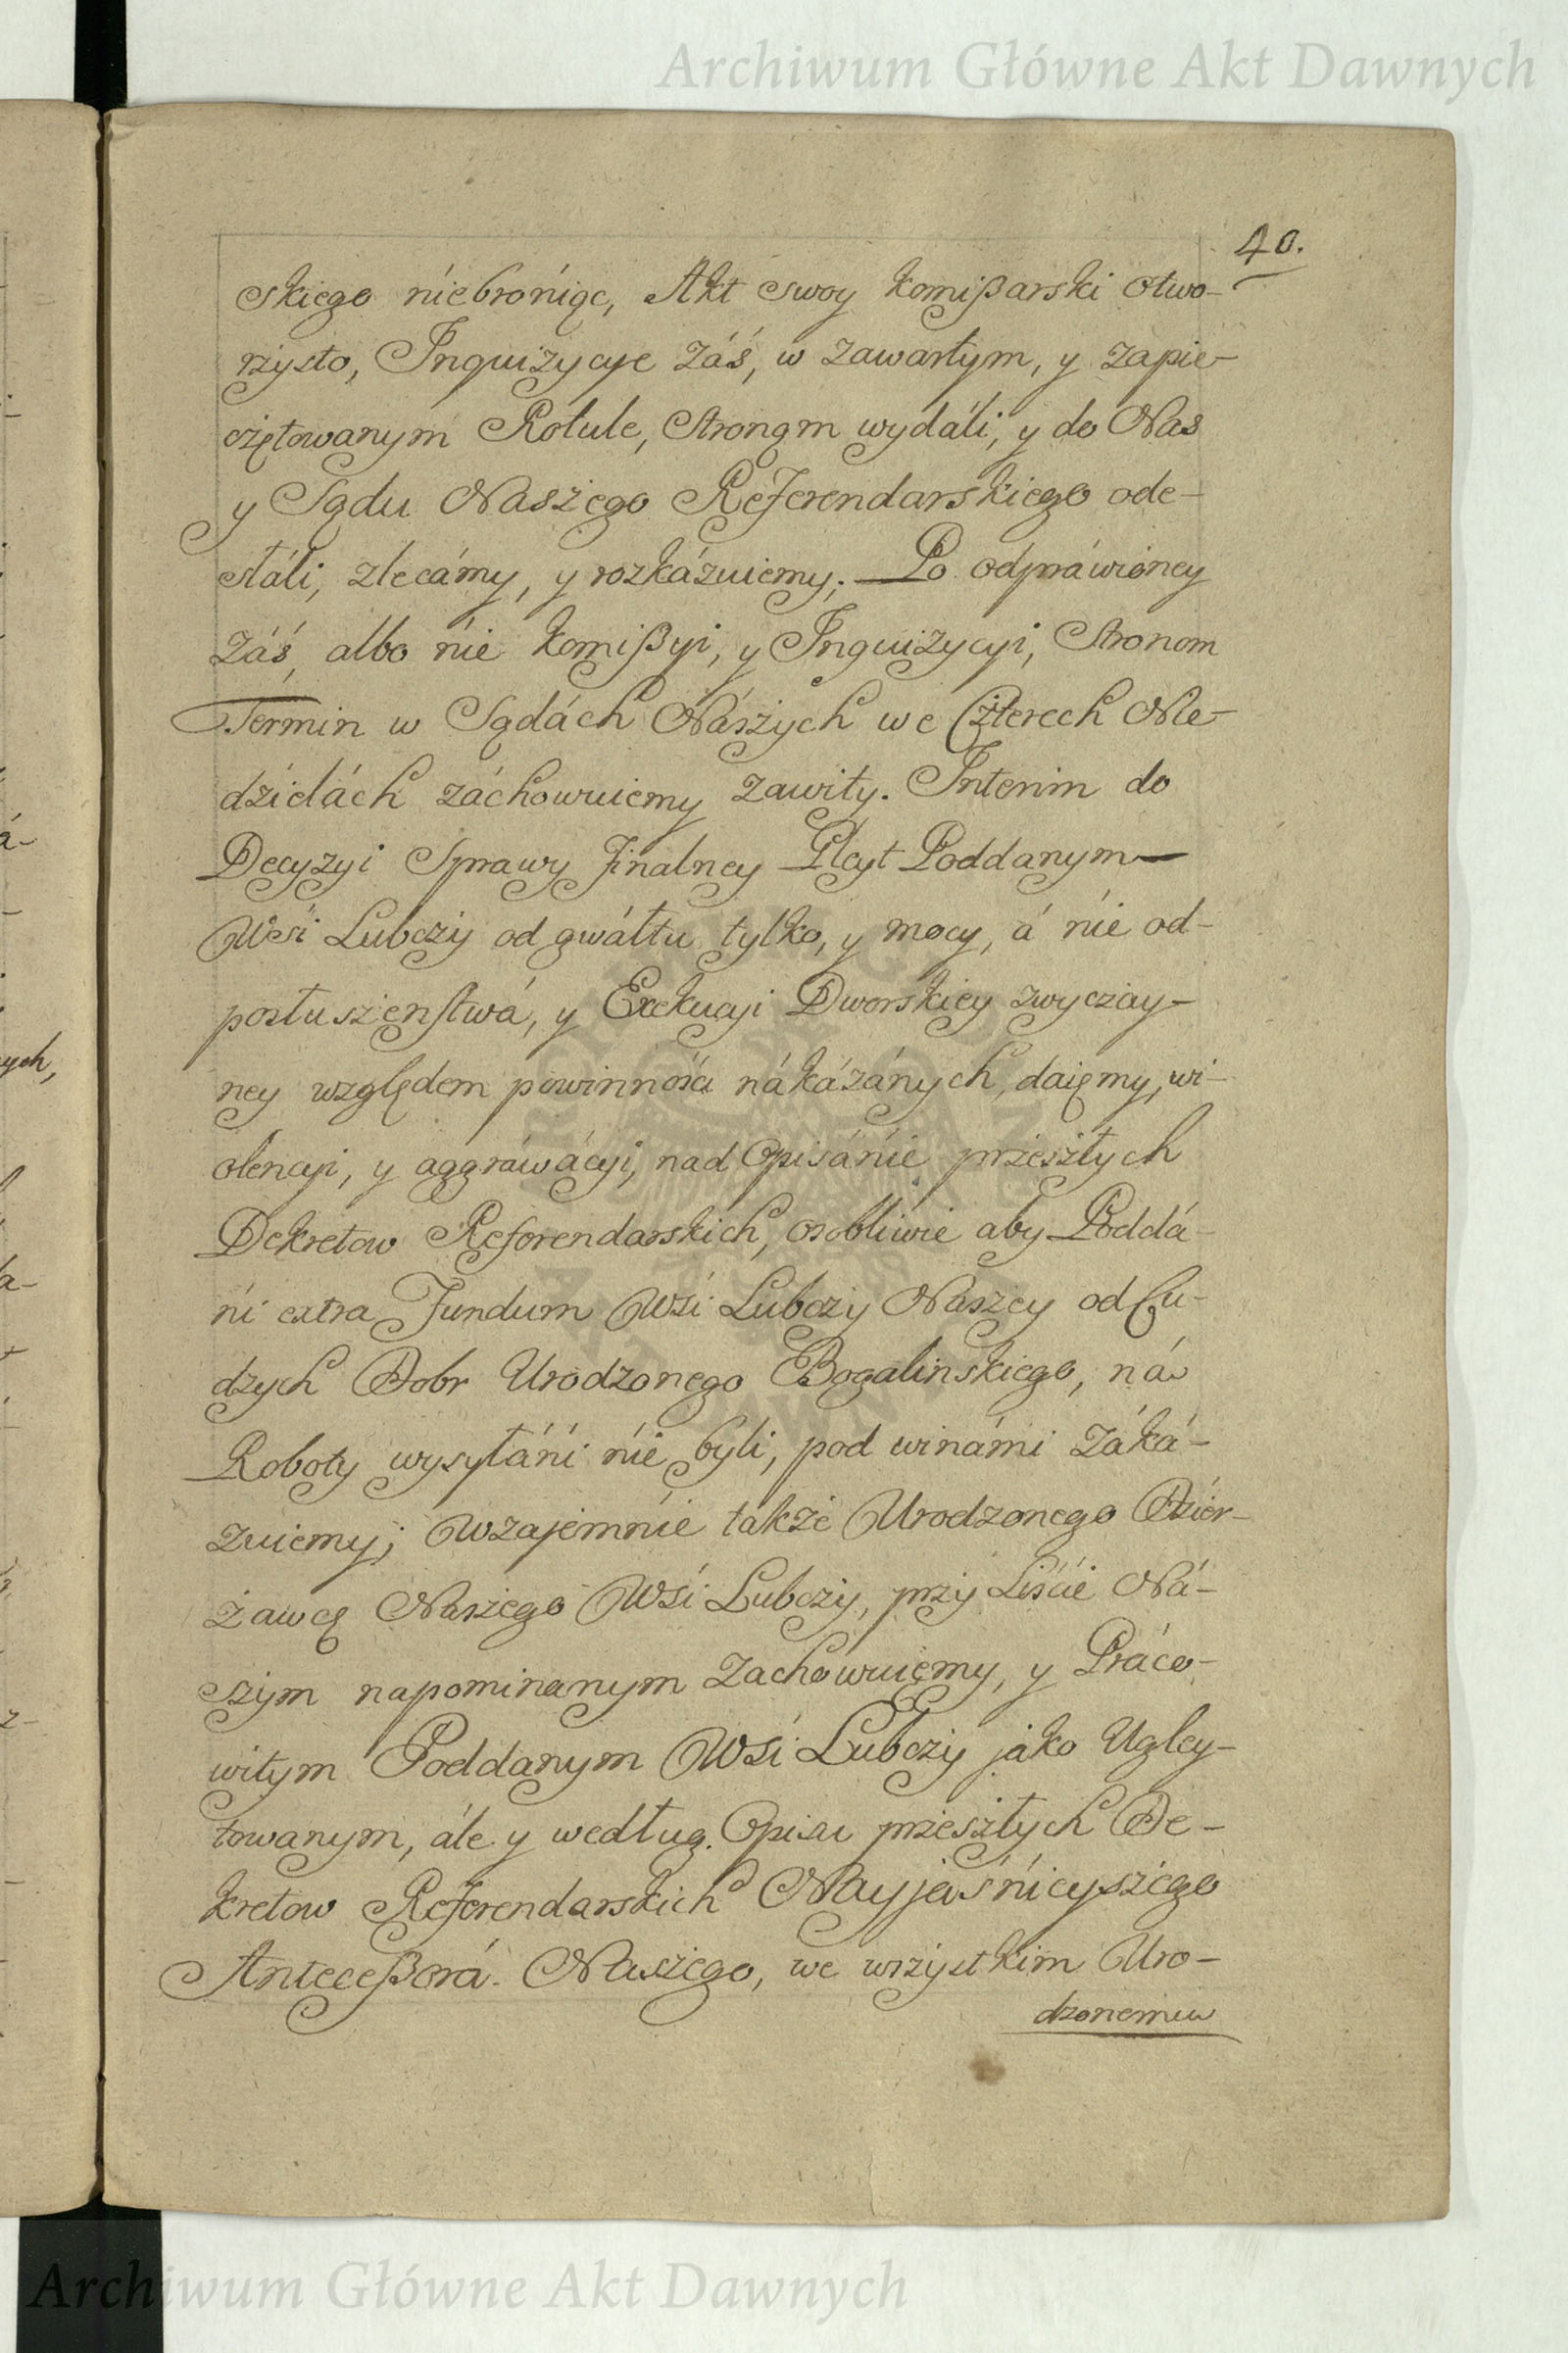 Archiwum Główne Akt Dawnych
40.
skiego niebroniąc, Akt swoy komißarski otwo-
rzysto, Inquizycye záś, w zawartym, y zapie-
czętowanym Rotule, Stronąm wydáli, y do Nas
y Sądu Naszego Referendarskiego ode-
słáli, zlecámy, y rozkázuiemy; Po odpráwioney
záś, albo nie komißyi, y Inquizycyi, Stronom
Termin w Sądách Nászych we Czterech Nie-
dzielách záchowuiemy zawity. Interim do
Decyzyi Sprawy finalney Gleyt Poddanym
Wsi Lubczy od gwáłtu tylko, y mocy, á nie od-
posłuszenstwá, y Exekucyi Dworskiey zwyczay-
ney względem powinności nákázánych, daięmy, wi-
olencyi, y aggráwácyi, nad Opisánie przeszłych
Dekretow Referendarskich, osobliwie aby Poddá-
ni extra Fundum Wsi Lubczy Naszey od Cu-
dzych Dobr Urodzonego Bogalinskiego, ná
Roboty wysyłáni nie byli, pod winámi záká-
zuiemy; Wzajemnie także Urodzonego Dzier-
żawcę Naszego Wsi Lubczy, przy Liście Ná-
szym napominanym zachowuięmy, y Práco-
witym Poddanym Wsi Lubczy jáko Ugley-
towanym, ále y według Opisu przeszłych De-
kretow Referendarskich Nayjaśnieyszego
Anteceßorá Naszego, we wszystkim Uro-
dzonemu
Archiwum Główne Akt Dawnych